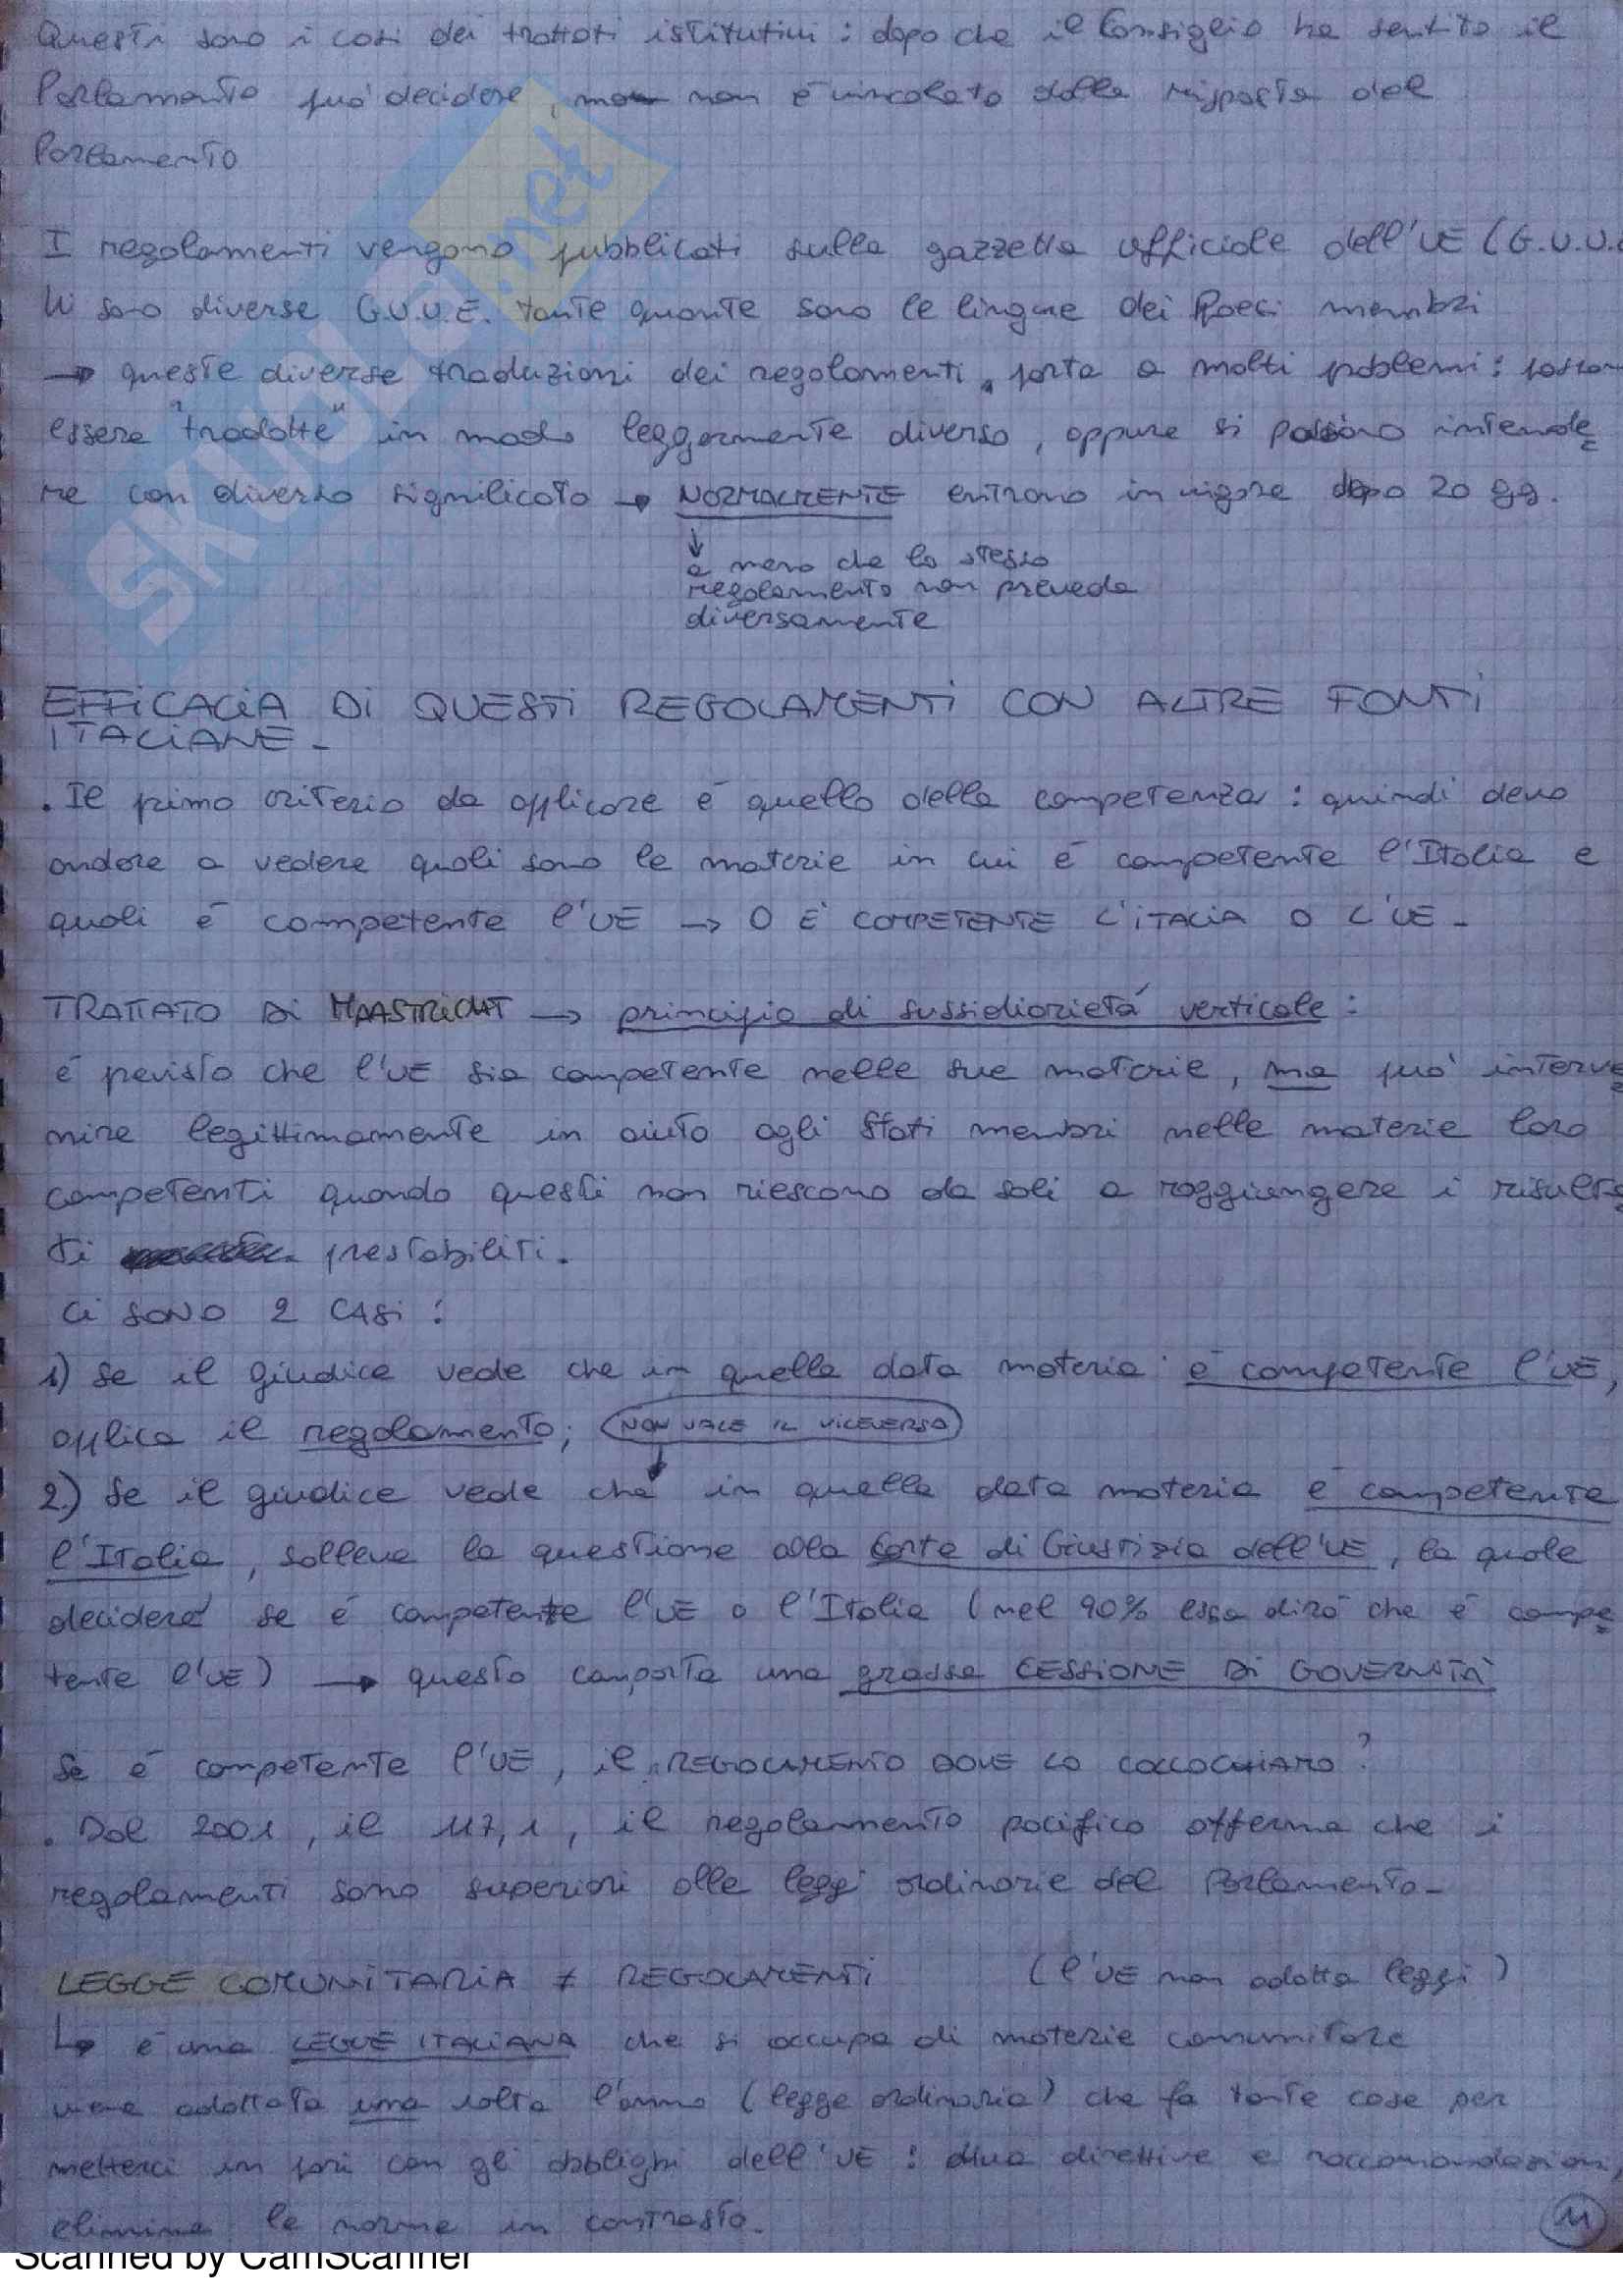 Questi sono i casi dei trattati istitutivi : dopo che il Consiglio ha sentito il
Parlamento può decidere, ma non è vincolato dalla risposta del
Parlamento
I regolamenti vengono pubblicati sulla gazzetta ufficiale dell'UE (G.U.U.E
Vi sono diverse G.U.U.E. tante quante sono le lingue dei Paesi membri
→ queste diverse traduzioni dei regolamenti, porta a molti problemi : posson
essere "tradotte" in modo leggermente diverso, oppure si possono intende
re con diverso significato → NORMALMENTE entrano in vigore dopo 20 gg.
↓
a meno che lo stesso
regolamento non preveda
diversamente
EFFICACIA DI QUESTI REGOLAMENTI CON ALTRE FONTI
ITALIANE -
. Il primo criterio da applicare è quello della competenza : quindi devo
andare a vedere quali sono le materie in cui è competente l'Italia e
quali è competente l'UE → O È COMPETENTE L'ITALIA O L'UE -
TRATTATO DI MAASTRICHT → principio di sussidiarietà verticale :
è pevisto che l'UE sia competente nelle sue materie, ma può interve
nire legittimamente in aiuto agli Stati membri nelle materie loro
competenti quando questi non riescono da soli a raggiungere i risulta
ti prestabiliti.
CI SONO 2 CASI :
1) Se il giudice vede che in quella data materia è competente l'UE,
applica il regolamento; (NON VALE IL VICEVERSA)
2.) Se il giudice vede che in quella data materia è competente
l'Italia, solleva la questione alla Corte di Giustizia dell'UE, la quale
deciderà se è competente l'UE o l'Italia (nel 90% essa dirà che è compe
tente l'UE) → questo comporta una grossa CESSIONE DI GOVERNITÀ
Se è competente l'UE, il REGOLAMENTO DOVE LO COLLOCHIAMO ?
. Dal 2001, il 117,1, il regolamento pacifico afferma che i
regolamenti sono superiori alle leggi ordinarie del Parlamento -
LEGGE COMUNITARIA ≠ REGOLAMENTI (l'UE non adotta leggi)
↳ è una LEGGE ITALIANA che si occupa di materie comunitare
viene adottata una volta l'anno (legge ordinaria) che fa tante cose per
metterci in pari con gli obblighi dell'UE : attua direttive e raccomandazioni,
elimina le norme in contrasto.
11
SKUOLA.net
Scanned by CamScanner